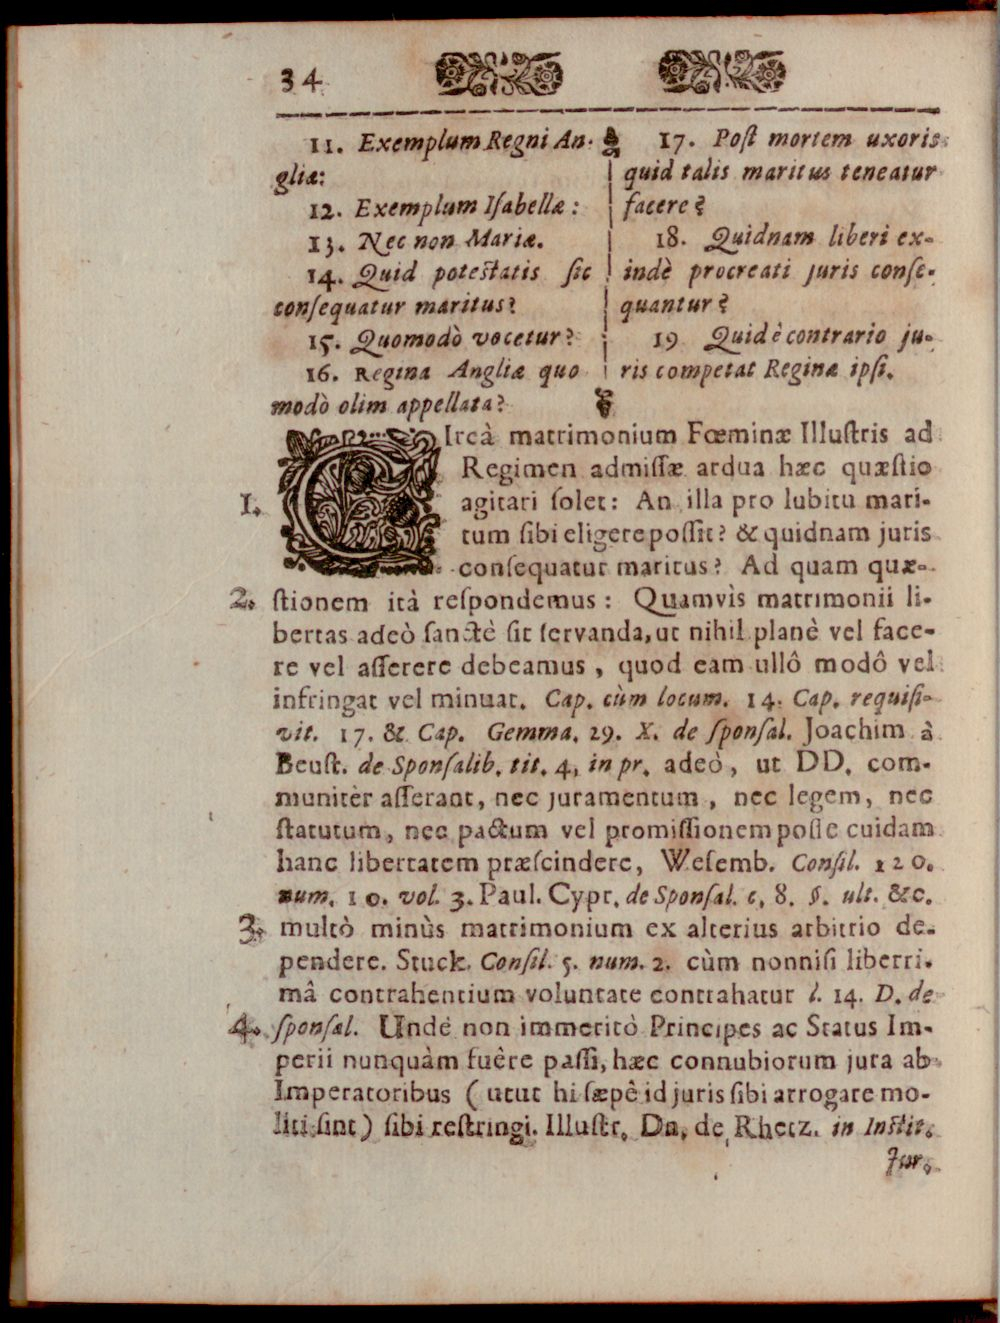 34
11. Exemplum Regni An-
gliæ:
12. Exemplum Iſabellæ :
13. Nec non Mariæ.
14. Quid poteſtatis ſic
conſequatur maritus?
15. Quomodò vocetur?
16. Regina Angliæ quo
modò olim appellata?
17. Poſt mortem uxoris
quid talis maritus teneatur
facere?
18. Quidnam liberi ex-
indè procreati juris conſe-
quantur?
19 Quid è contrario ju-
ris competat Reginæ ipſi.
CIrcà matrimonium Fœminæ Illuſtris ad
Regimen admiſſæ ardua hæc quæſtio
1. agitari ſolet: An illa pro lubitu mari-
tum ſibi eligere poſſit? & quidnam juris
conſequatur maritus? Ad quam quæ-
2. ſtionem ità reſpondemus: Quamvìs matrimonii li-
bertas adeò ſanctè ſit ſervanda, ut nihil planè vel face-
re vel aſſerere debeamus, quod eam ullô modô vel
infringat vel minuat. Cap. cùm locum. 14. Cap. requiſi-
vit. 17. & Cap. Gemma. 29. X. de ſponſal. Joachim à
Beuſt. de Sponſalib. tit. 4, in pr. adeò, ut DD. com-
munitèr aſſerant, nec juramentum, nec legem, nec
ſtatutum, nec pactum vel promiſſionem poſſe cuidam
hanc libertatem præſcindere, Weſemb. Conſil. 120.
num. 10. vol. 3. Paul. Cypr. de Sponſal. c, 8. §. ult. &c.
3. multò minùs matrimonium ex alterius arbitrio de-
pendere. Stuck. Conſil. 5. num. 2. cùm nonniſi liberri-
mâ contrahentium voluntate contrahatur l. 14. D. de
4. ſponſal. Undè non immeritò Principes ac Status Im-
perii nunquàm fuêre paſſi, hæc connubiorum jura ab
Imperatoribus (utut hi ſæpè id juris ſibi arrogare mo-
liti ſint) ſibi reſtringi. Illuſtr. Dn. de Rhetz. in Inſtit.
Jur.